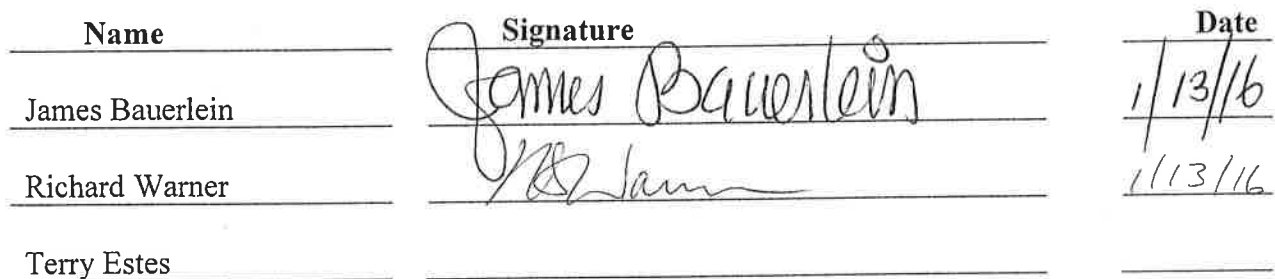 Name Signature Date
James Bauerlein James Bauerlein 1/13/16
Richard Warner Warner 1/13/16
Terry Estes